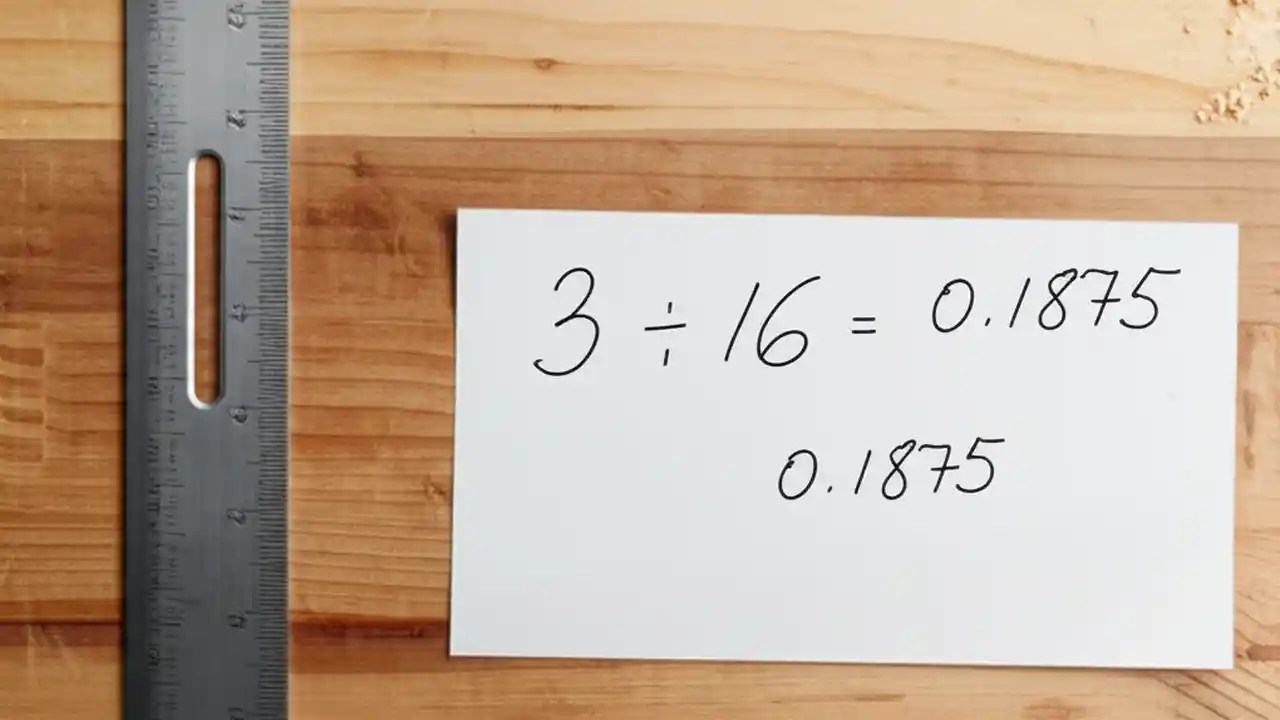 3 ÷ 16 = 0.1875
0.1875